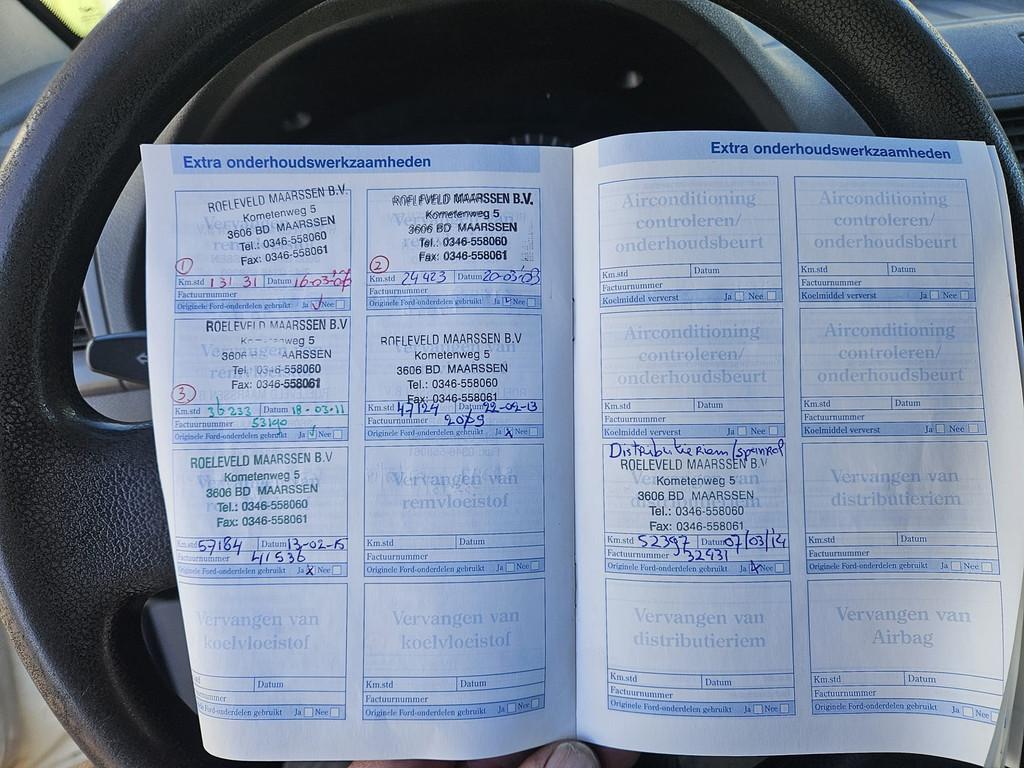 Extra onderhoudswerkzaamheden
ROELEVELD MAARSSEN B.V.
Kometenweg 5
3606 BD MAARSSEN
Tel.: 0346-558060
Fax: 0346-558061
1
Km.std 13131 Datum
Factuurnummer
Originele Ford-onderdelen gebruikt Ja Nee
ROELEVELD MAARSSEN B.V.
Kometenweg 5
3606 BD MAARSSEN
Tel.: 0346-558060
Fax: 0346-558061
2
Km.std 24423 Datum 20-03-09
Factuurnummer
Originele Ford-onderdelen gebruikt Ja Nee
ROELEVELD MAARSSEN B.V
Kometenweg 5
3606 MAARSSEN
Tel.: 0346-558060
Fax: 0346-558061
3
Km.std 36233 Datum 18-03-11
Factuurnummer 53190
Originele Ford-onderdelen gebruikt Ja Nee
Vervangen van
ROELEVELD MAARSSEN B.V
Kometenweg 5
3606 BD MAARSSEN
Tel.: 0346-558060
Fax: 0346-558061
Km.std 47124 Datum 22-02-13
Factuurnummer
Originele Ford-onderdelen gebruikt Ja Nee
ROELEVELD MAARSSEN B.V.
Kometenweg 5
3606 BD MAARSSEN
Tel.: 0346-558060
Fax: 0346-558061
Km.std 57184 Datum 13-02-15
Factuurnummer 41536
Originele Ford-onderdelen gebruikt Ja Nee
Vervangen van
remvloeistof
Km.std Datum
Factuurnummer
Originele Ford-onderdelen gebruikt Ja Nee
Vervangen van
koelvloeistof
Km.std Datum
Factuurnummer
Originele Ford-onderdelen gebruikt Ja Nee
Vervangen van
koelvloeistof
Km.std Datum
Factuurnummer
Originele Ford-onderdelen gebruikt Ja Nee
Extra onderhoudswerkzaamheden
Airconditioning
controleren/
onderhoudsbeurt
Km.std Datum
Factuurnummer
Koelmiddel ververst Ja Nee
Airconditioning
controleren/
onderhoudsbeurt
Km.std Datum
Factuurnummer
Koelmiddel ververst Ja Nee
Airconditioning
controleren/
onderhoudsbeurt
Km.std Datum
Factuurnummer
Koelmiddel ververst Ja Nee
Airconditioning
controleren/
onderhoudsbeurt
Km.std Datum
Factuurnummer
Koelmiddel ververst Ja Nee
Distributieriem/spanrol
ROELEVELD MAARSSEN B.V
Kometenweg 5
3606 BD MAARSSEN
Tel.: 0346-558060
Fax: 0346-558061
Km.std 52397 Datum 07/03/14
Factuurnummer 32431
Originele Ford-onderdelen gebruikt Ja Nee
Vervangen van
distributieriem
Km.std Datum
Factuurnummer
Originele Ford-onderdelen gebruikt Ja Nee
Vervangen van
distributieriem
Km.std Datum
Factuurnummer
Originele Ford-onderdelen gebruikt Ja Nee
Vervangen van
Airbag
Km.std Datum
Factuurnummer
Originele Ford-onderdelen gebruikt Ja Nee